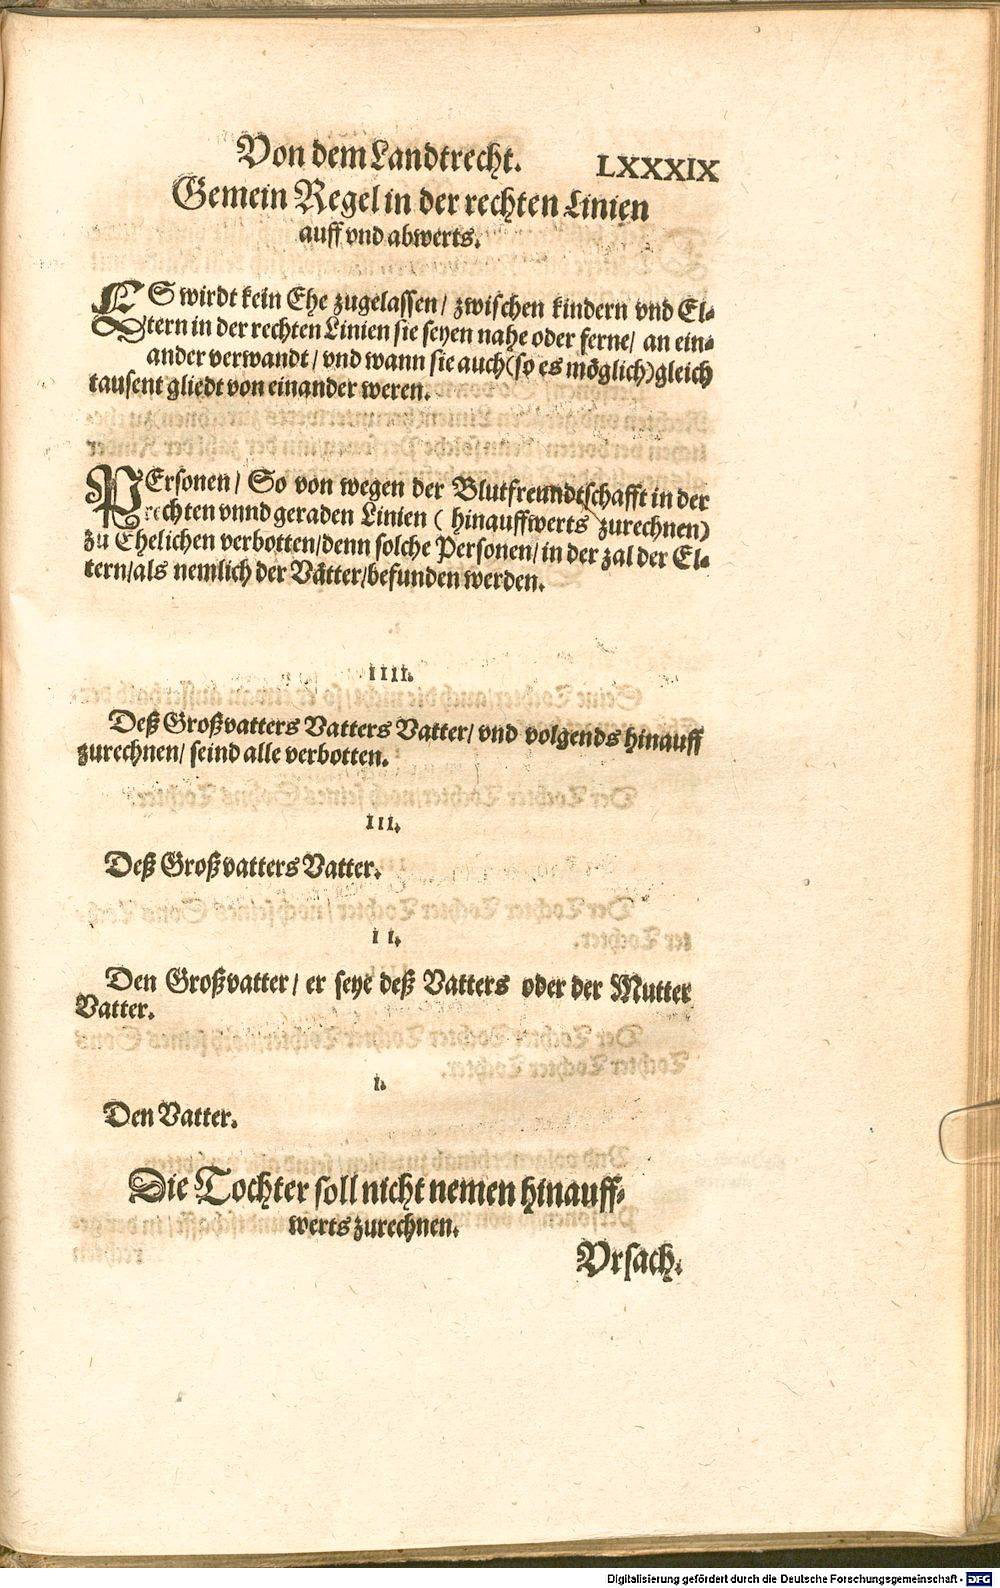 Von dem Landtrecht. LXXXIX
Gemein Regel in der rechten Linien
auff vnd abwerts.
ES wirdt kein Ehe zugelassen / zwischen kindern vnd El-
tern in der rechten Linien sie seyen nahe oder ferne / an ein-
ander verwandt / vnd wann sie auch (so es möglich) gleich
tausent gliedt von einander weren.
PErsonen / So von wegen der Blutfreundtschafft in der
rechten vnnd geraden Linien ( hinauffwerts zurechnen)
zu Ehelichen verbotten / denn solche Personen / in der zal der El-
tern / als nemlich der Vätter / befunden werden.
IIII.
Deß Großvatters Vatters Vatter / vnd volgends hinauff
zurechnen / seind alle verbotten.
III.
Deß Großvatters Vatter.
II.
Den Großvatter / er seye deß Vatters oder der Mutter
Vatter.
I.
Den Vatter.
Die Tochter soll nicht nemen hinauff-
werts zurechnen.
Vrsach.
Digitalisierung gefördert durch die Deutsche Forschungsgemeinschaft - DFG